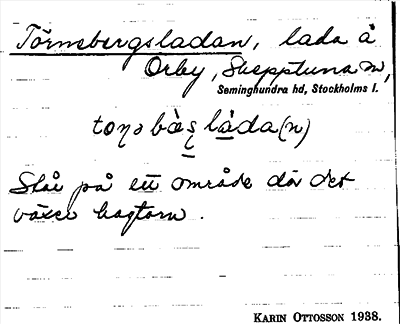 Törnebergsladan, lada å
Örby, Skepptuna sn,
Seminghundra hd, Stockholms l.
toṇə bæ̀s̩ làda(n)
Står på ett område där det
växer hagtorn.
KARIN OTTOSSON 1938.